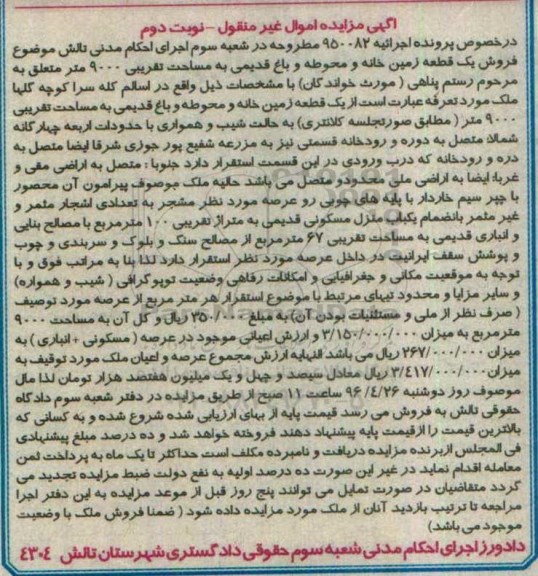 آگهی مزایده اموال غیر منقول - نوبت دوم
درخصوص پرونده اجرائیه ۹۵۰۰۸۲ مطروحه در شعبه سوم اجرای احکام مدنی تالش موضوع
فروش یک قطعه زمین خانه و محوطه و باغ قدیمی به مساحت تقریبی ۹۰۰۰ متر متعلق به
مرحوم رستم پناهی ( مورث خواندگان) با مشخصات ذیل واقع در اسالم کله سرا کوچه گلها
ملک مورد تعرفه عبارت است از یک قطعه زمین خانه و محوطه و باغ قدیمی به مساحت تقریبی
۹۰۰۰ متر ( مطابق صورتجلسه کلانتری) به حالت شیب و همواری با حدودات اربعه چهارگانه
شمالا: متصل به دوره و رودخانه قسمتی نیز به مزرعه شفیع پور جوزی شرقا ایضا متصل به
دره و رودخانه که درب ورودی در این قسمت استقرار دارد جنوبا : متصل به اراضی مقی و
غربا: ایضا به اراضی ملی محدود و متصل می باشد حالیه ملک موصوف پیرامون آن محصور
با چپر سیم خاردار با پایه های چوبی رو عرصه مورد نظر مشجر به تعدادی اشجار مثمر و
غیر مثمر بانضمام یکباب منزل مسکونی قدیمی به متراژ تقریبی ۱۰۰ مترمربع با مصالح بنایی
و انباری قدیمی به مساحت تقریبی ۶۷ مترمربع از مصالح سنگ و بلوک و سربندی و چوب
و پوشش سقف ایرانیت در داخل عرصه مورد نظر استقرار دارد لذا بنا به مراتب فوق و با
توجه به موقعیت مکانی و جغرافیایی و امکانات رفاهی وضعیت توپوگرافی ( شیب و همواره)
و سایر مزایا و محدودتیهای مرتبط با موضوع استقرار هر متر مربع از عرصه مورد توصیف
( صرف نظر از ملی و مستثنیات بودن آن) به مبلغ ۳۵۰/۰۰۰ ریال و کل آن به مساحت ۹۰۰۰
مترمربع به میزان ۳/۱۵۰/۰۰۰/۰۰۰ و ارزش اعیانی موجود در عرصه ( مسکونی + انباری ) به
میزان ۲۶۷/۰۰۰/۰۰۰ ریال می باشد النهایه ارزش مجموع عرصه و اعیان ملک مورد توقیف به
میزان ۳/۴۱۷/۰۰۰/۰۰۰ ریال معادل سیصد و چهل و یک میلیون هفتصد هزار تومان لذا مال
موصوف روز دوشنبه ۹۶/۴/۲۶ ساعت ۱۱ صبح از طریق مزایده در دفتر شعبه سوم دادگاه
حقوقی تالش به فروش می رسد قیمت پایه از بهای ارزیابی شده شروع شده و به کسانی که
بالاترین قیمت را ازقیمت پایه پیشنهاد دهند فروخته خواهد شد و ده درصد مبلغ پیشنهادی
فی المجلس ازبرنده مزایده دریافت و نامبرده مکلف است حداکثر تا یک ماه به پرداخت ثمن
معامله اقدام نماید در غیر این صورت ده درصد اولیه به نفع دولت ضبط مزایده تجدید می
گردد متقاضیان در صورت تمایل می توانند پنج روز قبل از موعد مزایده به این دفتر اجرا
مراجعه تا ترتیب بازدید آنان از ملک مورد مزایده داده شود ( ضمنا فروش ملک با وضعیت
موجود می باشد)
دادورز اجرای احکام مدنی شعبه سوم حقوقی دادگستری شهرستان تالش ۴۳۰۴